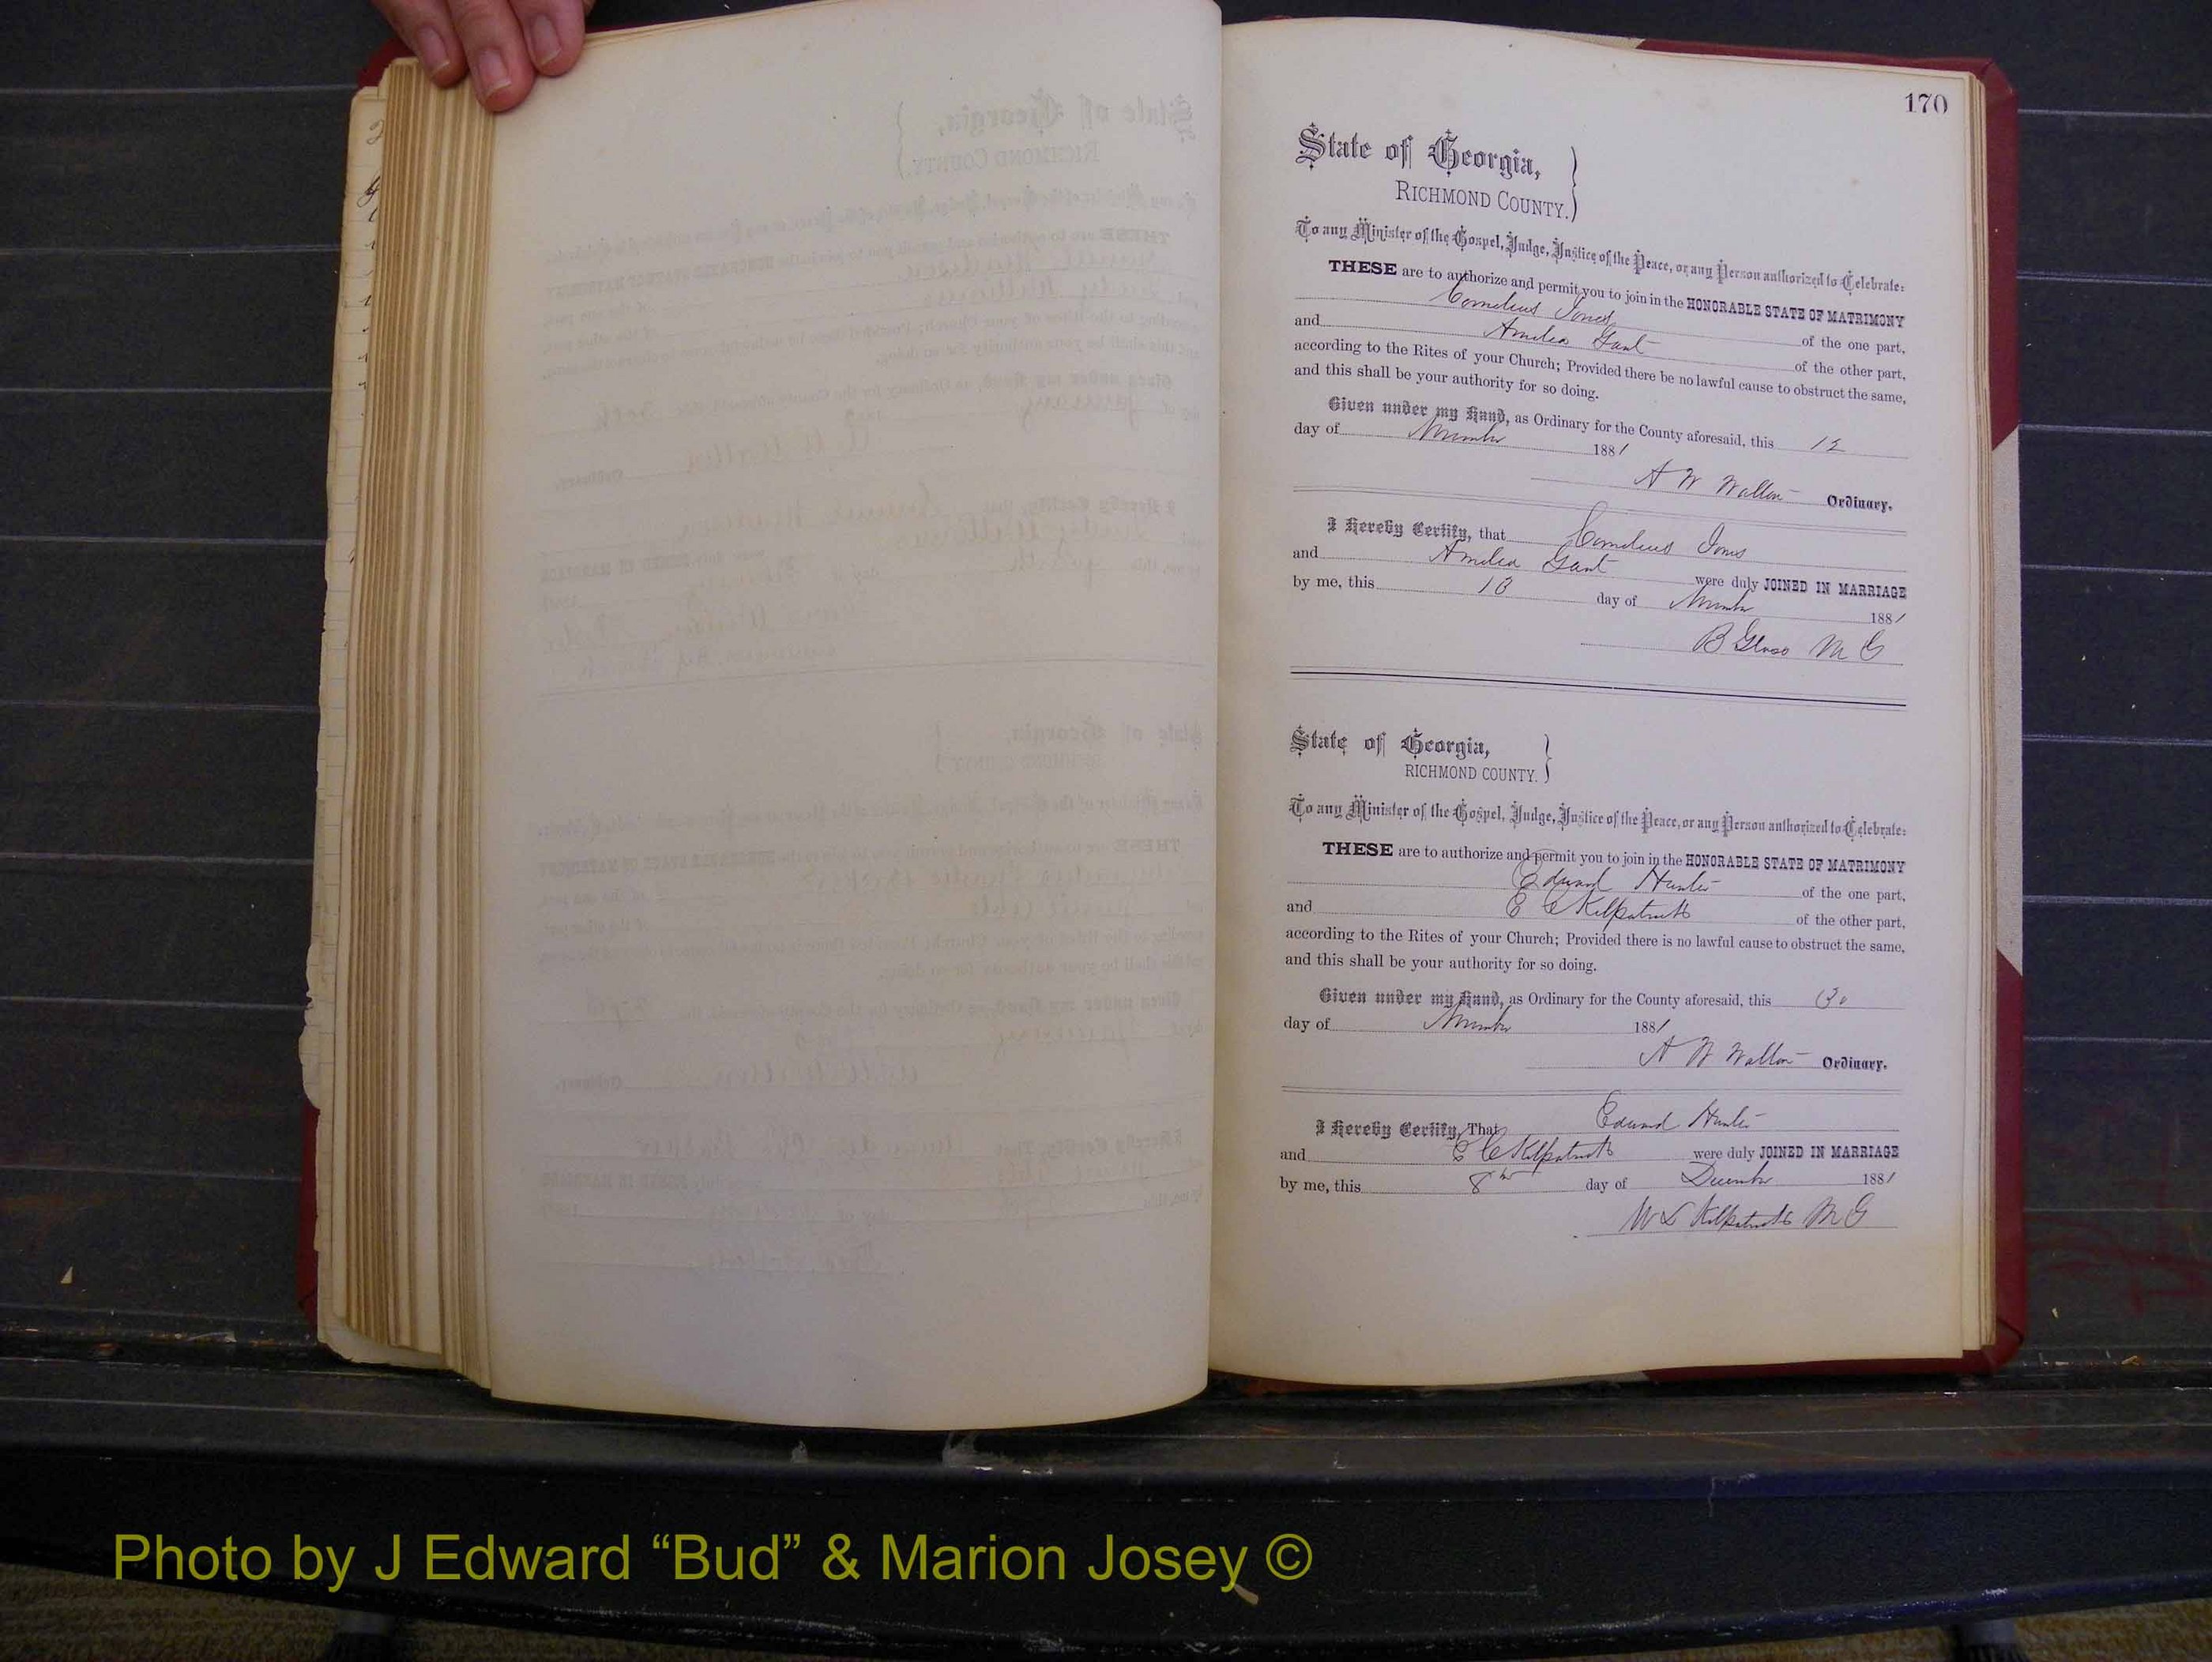 170
State of Georgia,
RICHMOND COUNTY.
To any Minister of the Gospel, Judge, Justice of the Peace, or any Person authorized to Celebrate:
THESE are to authorize and permit you to join in the HONORABLE STATE OF MATRIMONY
Cornelius Jones of the one part,
and Amelia Gant of the other part,
according to the Rites of your Church; Provided there be no lawful cause to obstruct the same,
and this shall be your authority for so doing.
Given under my Hand, as Ordinary for the County aforesaid, this 12
day of November 1881
A W Walton Ordinary.
I Hereby Certify, that Cornelius Jones
and Amelia Gant were duly JOINED IN MARRIAGE
by me, this 13 day of November 1881
B M G
State of Georgia,
RICHMOND COUNTY.
To any Minister of the Gospel, Judge, Justice of the Peace, or any Person authorized to Celebrate:
THESE are to authorize and permit you to join in the HONORABLE STATE OF MATRIMONY
Edward Hunter of the one part,
and E C Kilpatrick of the other part,
according to the Rites of your Church; Provided there is no lawful cause to obstruct the same,
and this shall be your authority for so doing.
Given under my Hand, as Ordinary for the County aforesaid, this 30
day of November 1881
A W Walton Ordinary.
I Hereby Certify, That Edward Hunter
and E C Kilpatrick were duly JOINED IN MARRIAGE
by me, this 8th day of December 1881
W L Kilpatrick M G
Photo by J Edward “Bud” & Marion Josey ©